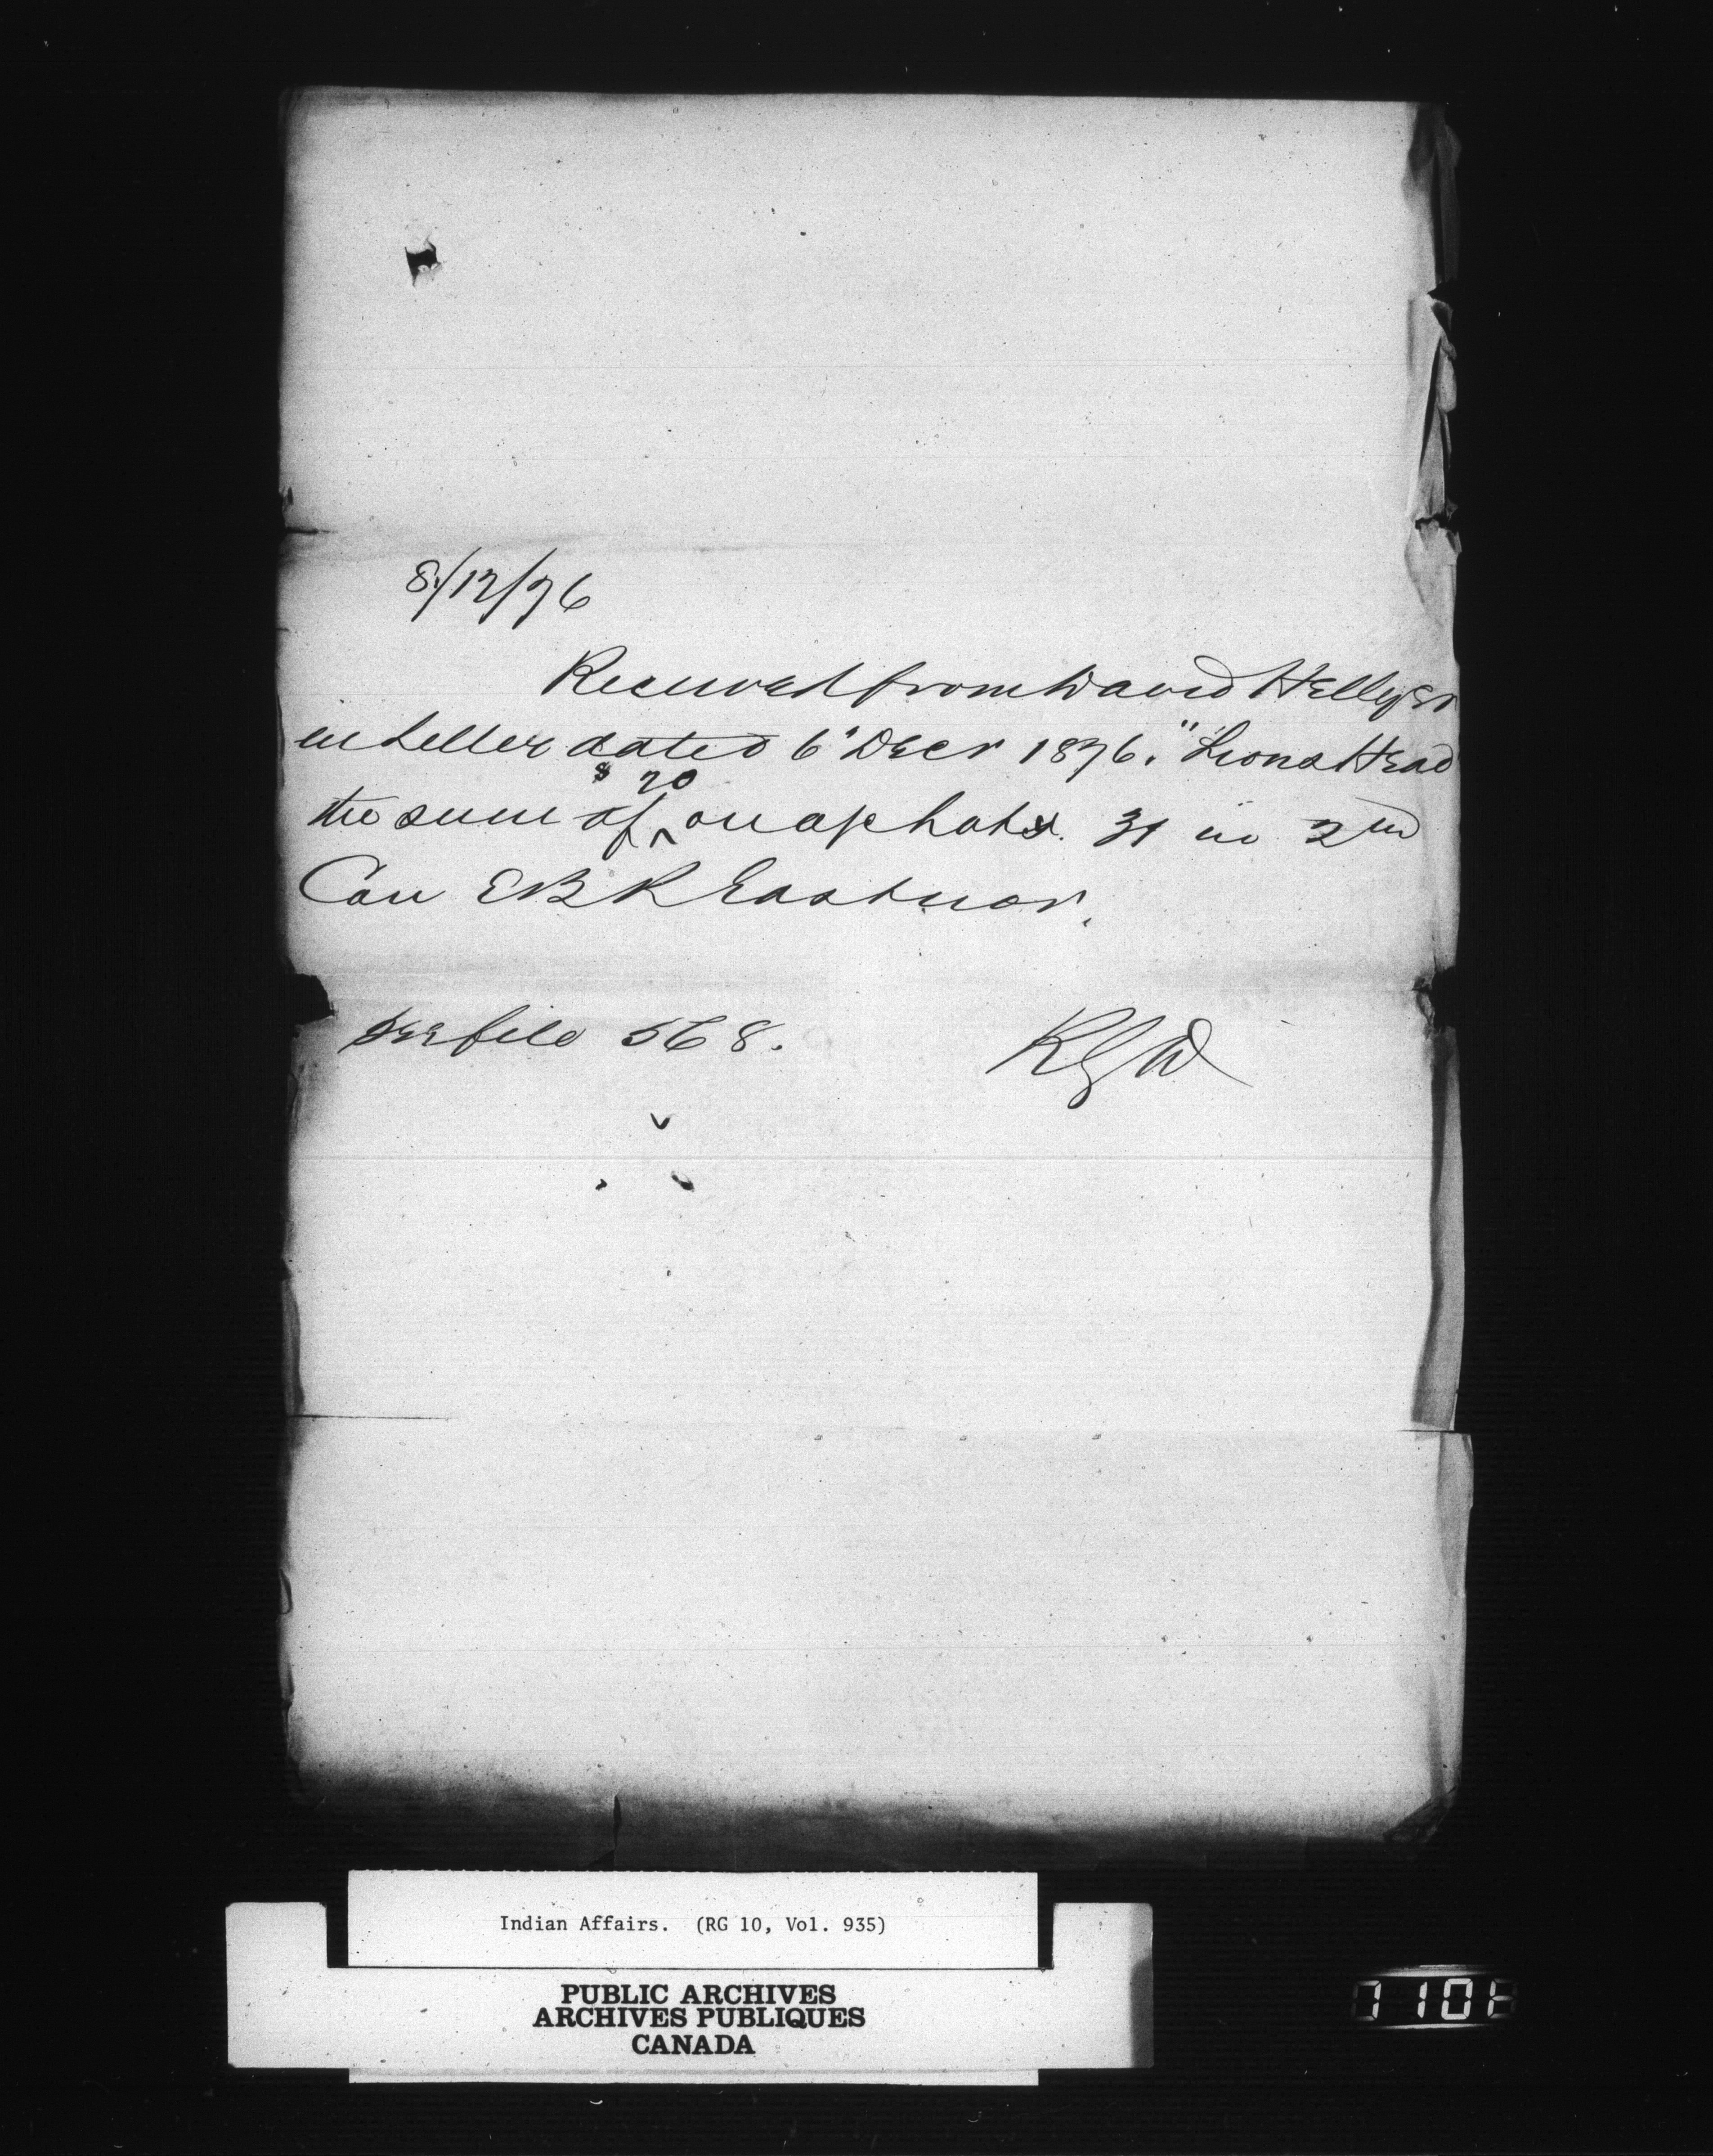 8/12/76
Received from David Hellyer
in letter dated 6" Decr 1876. "Lions Head
the sum of ^ $20 on a/c of lot 31 in 2nd
Con EBR Eastnor.
See file 568.
Indian Affairs. (RG 10, Vol. 935)
PUBLIC ARCHIVES
ARCHIVES PUBLIQUES
CANADA